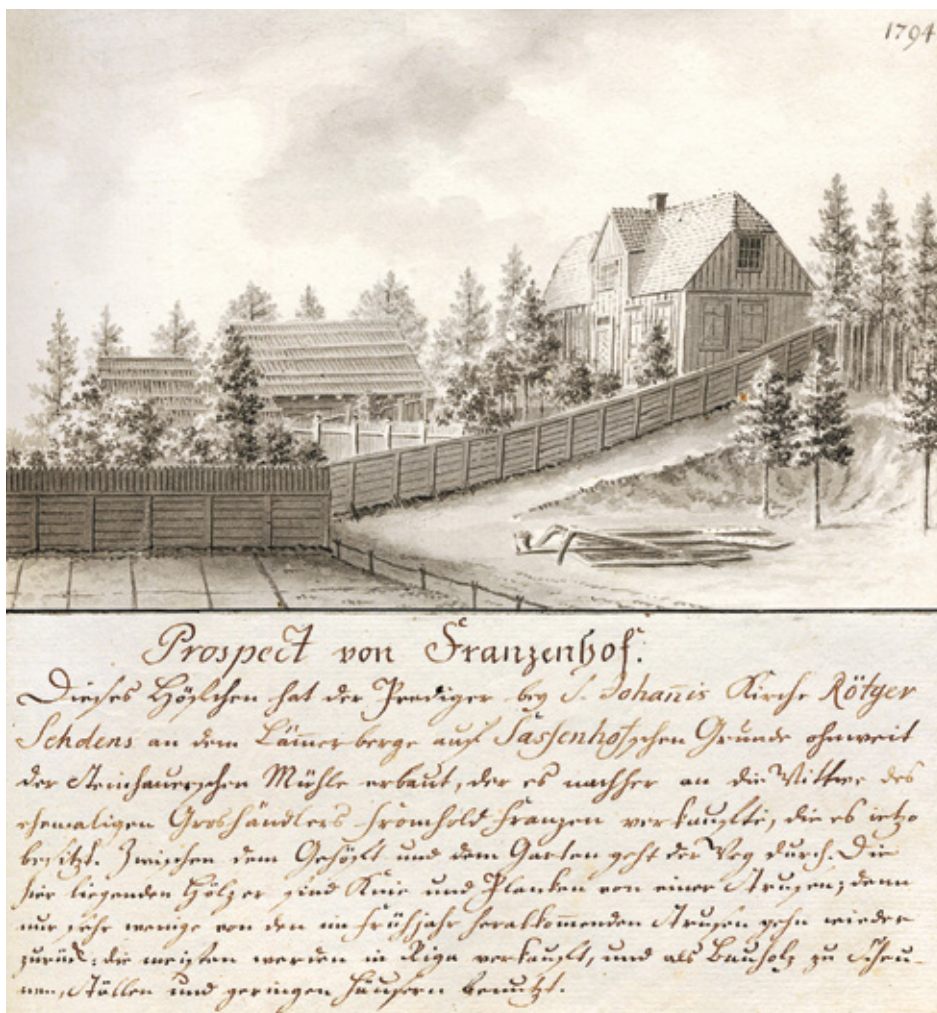 1794
Prospect von Franzenhof.
Dieses Höfchen hat der Prediger bey S. Johañis Kirche Rötger
Sehdens an dem Läm̃erberge auf Sassenhofschen Grunde ohnweit
der Steinhauerschen Mühle erbaut, der es nachher an die Wittwe des
ehemaligen Groshändlers Fromhold Franzen verkaufte, die es ietzo
besitzt. Zwischen dem Gehöft und dem Garten geht der Weg durch. Die
hier liegenden Hölzer sind Knie und Planken von einer Strusen; denn
nur sehr wenige von den im Frühjahr herabkom̃enden Strusen gehn wieder
zurück: die meisten werden in Riga verkauft, und als Bauholz zu Scheu-
nen, Ställen und geringen Häusern benutzt.